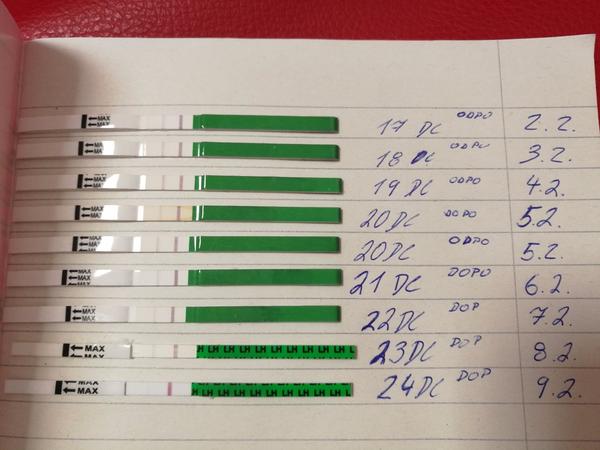 MAX 17 DC ODPO 2.2.
MA 18 DC ODPO 3.2.
MAX 19 DC ODPO 4.2.
MAX 20DC DOPO 5.2.
MAX 20DC ODPO 5.2.
MAX 21 DC DOPO 6.2.
MAX 22DC DOP 7.2.
MAX LH LH LH LH LH LH LH LH LH L 23DC DOP 8.2.
MAX LH LH LH LH LH LH LH LH LH L 24DC DOP 9.2.